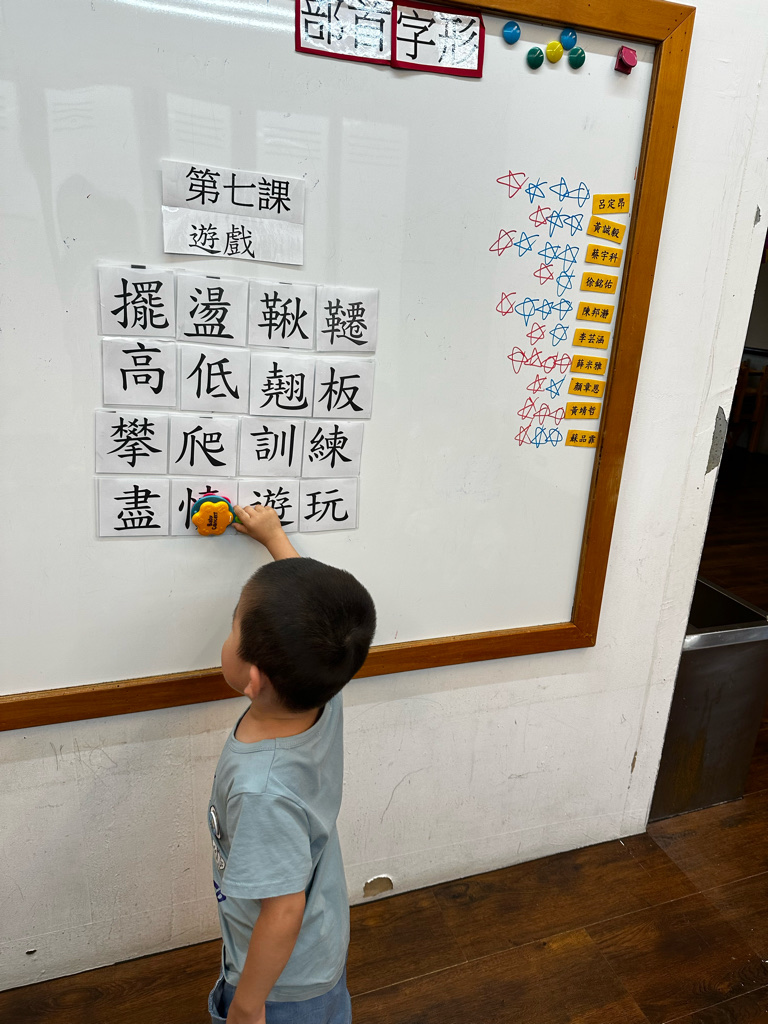 部首字形
第七課
遊戲
擺盪鞦韆
高低翹板
攀爬訓練
盡情遊玩
呂定昂
黃誠毅
蔡宇科
徐銘佑
陳邦瀞
李芸涵
薛米雅
顏章恩
黃靖哲
蘇品霏